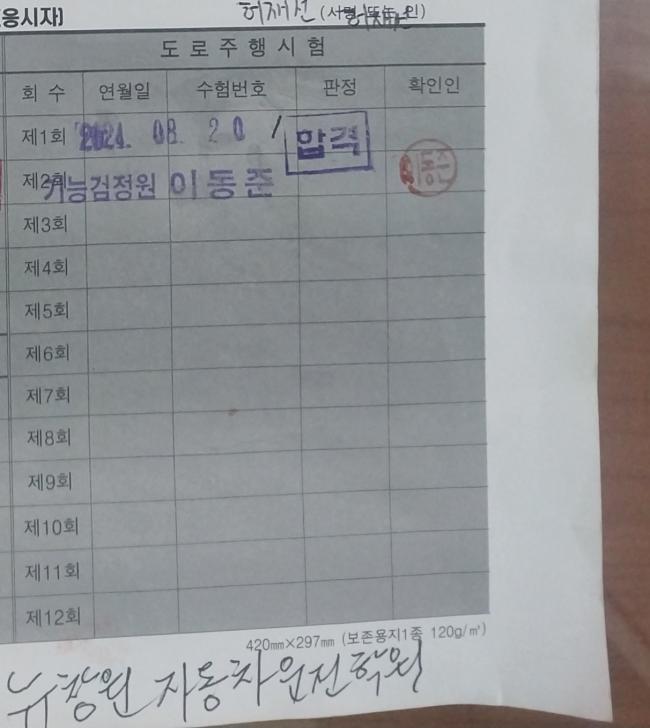 응시자] 허재선 (서명 또는 인)
도로주행시험
회 수 연월일 수험번호 판정 확인인
제1회 2024. 08. 20 / 합격
제2회 기능검정원 이동준
제3회
제4회
제5회
제6회
제7회
제8회
제9회
제10회
제11회
제12회
420㎜×297㎜ (보존용지1종 120g/㎡)
뉴창원 자동차운전학원